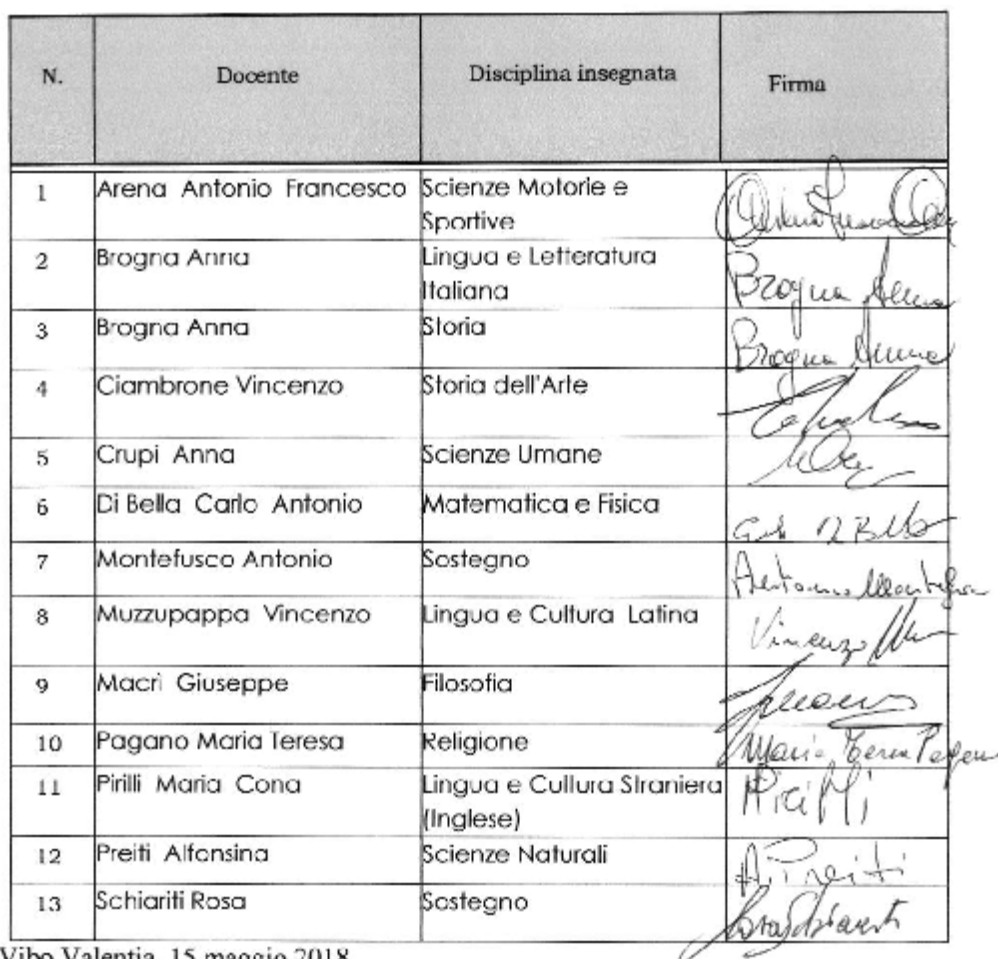 N. Docente Disciplina insegnata Firma
1 Arena Antonio Francesco Scienze Motorie e
Sportive
2 Brogna Anna Lingua e Letteratura
Italiana Brogna Anna
3 Brogna Anna Storia Brogna Anna
4 Ciambrone Vincenzo Storia dell'Arte
5 Crupi Anna Scienze Umane
6 Di Bella Carlo Antonio Matematica e Fisica
7 Montefusco Antonio Sostegno Antonio
8 Muzzupappa Vincenzo Lingua e Cultura Latina Vincenzo
9 Macrì Giuseppe Filosofia
10 Pagano Maria Teresa Religione Maria Teresa Pagano
11 Pirilli Maria Cona Lingua e Cultura Straniera
(Inglese)
12 Preiti Alfonsina Scienze Naturali A. Preiti
13 Schiariti Rosa Sostegno Rosa Schiariti
Vibo Valentia, 15 maggio 2018